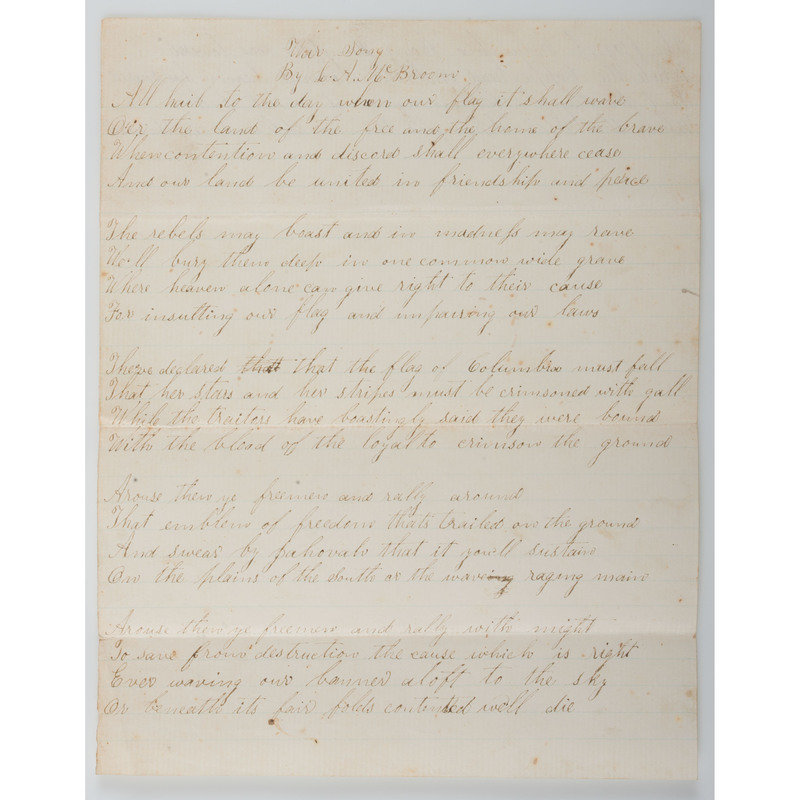 War Song
By A. Mc Broom
All hail to the day when our flag it shall wave
Oer the land of the free and the home of the brave
When contention and discord shall everywhere cease
And our land be united in friendship and peace
The rebels may boast and in madness may rave
We'll bury them deep in one common wide grave
Where heaven alone can give right to their cause
For insulting our flag and impairing our laws
declared that that the flag of Columbia must fall
That her stars and her stripes must be crimsoned with gall
While the traitors have boastingly said they were bound
With the blood of the loyal to crimson the ground
Arouse then ye freemen and rally around
That emblem of freedom thats trailed on the ground
And swear by that it you'll sustain
On the plains of the south or the waving raging main
Arouse then ye freemen and rally with might
To save from destruction the cause which is right
Ever waving our banner aloft to the sky
Or beneath its fair folds contented we'll die